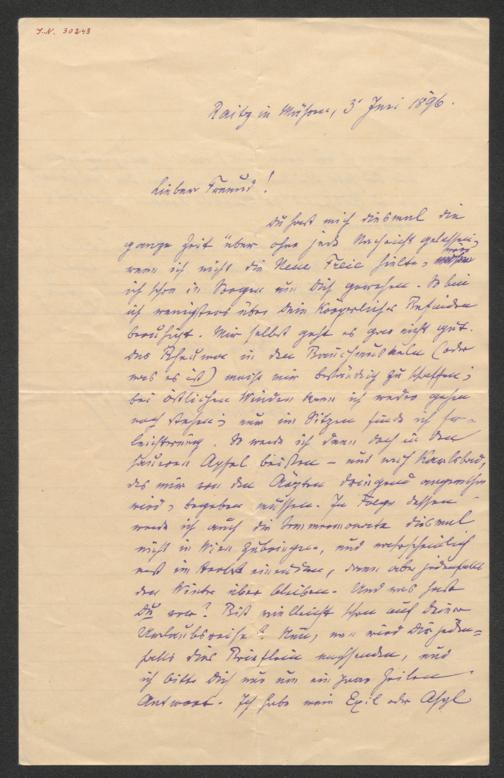 I.N. 30248
Raitz in Mähren, 3' Juni 1896.
Lieber Freund!
Du hast mich diesmal die
ganze Zeit über ohne jede Nachricht gelassen;
wenn ich nicht die Neue Freie hielte,
ich schon in Sorgen um Dich gewesen. So bin
ich wenigstens über Dein körperliches Befinden
beruhigt. Mir selbst geht es gar nicht gut.
Das Rheuma in den Bauchmuskeln (oder
was es ist) macht mir beständig zu schaffen;
bei östlichen Winden kann ich weder gehen
noch stehen; nur im Sitzen finde ich Er-
leichterung. So werde ich denn doch in den
sauren Apfel beißen – und nach Karlsbad,
das mir von den Ärzten dringend angerathen
wird, begeben müssen. In Folge dessen
werde ich auch die Sommermonate diesmal
nicht in Wien zubringen, und wahrscheinlich
erst im Herbst eintreffen, dann aber jedenfalls
den Winter über bleiben. Und was hast
Du vor? Bist vielleicht schon auf Deiner
Urlaubsreise? Nun, man wird Dir jeden-
falls dies Brieflein nachsenden, und
ich bitte Dich nur um ein paar Zeilen
Antwort. Ich habe mein Exil oder Asyl